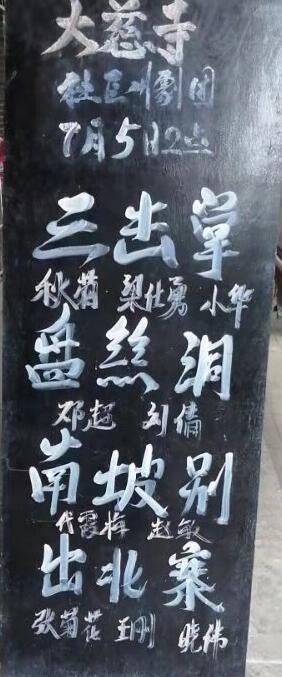 大慈寺
社区川剧团
7月5日2点
三击掌
秋菊 梨仕勇 小华
盘丝洞
邓超 刘倩
南坡别
代霞梅 赵敏
出北寨
张菊花 王刚 晓伟